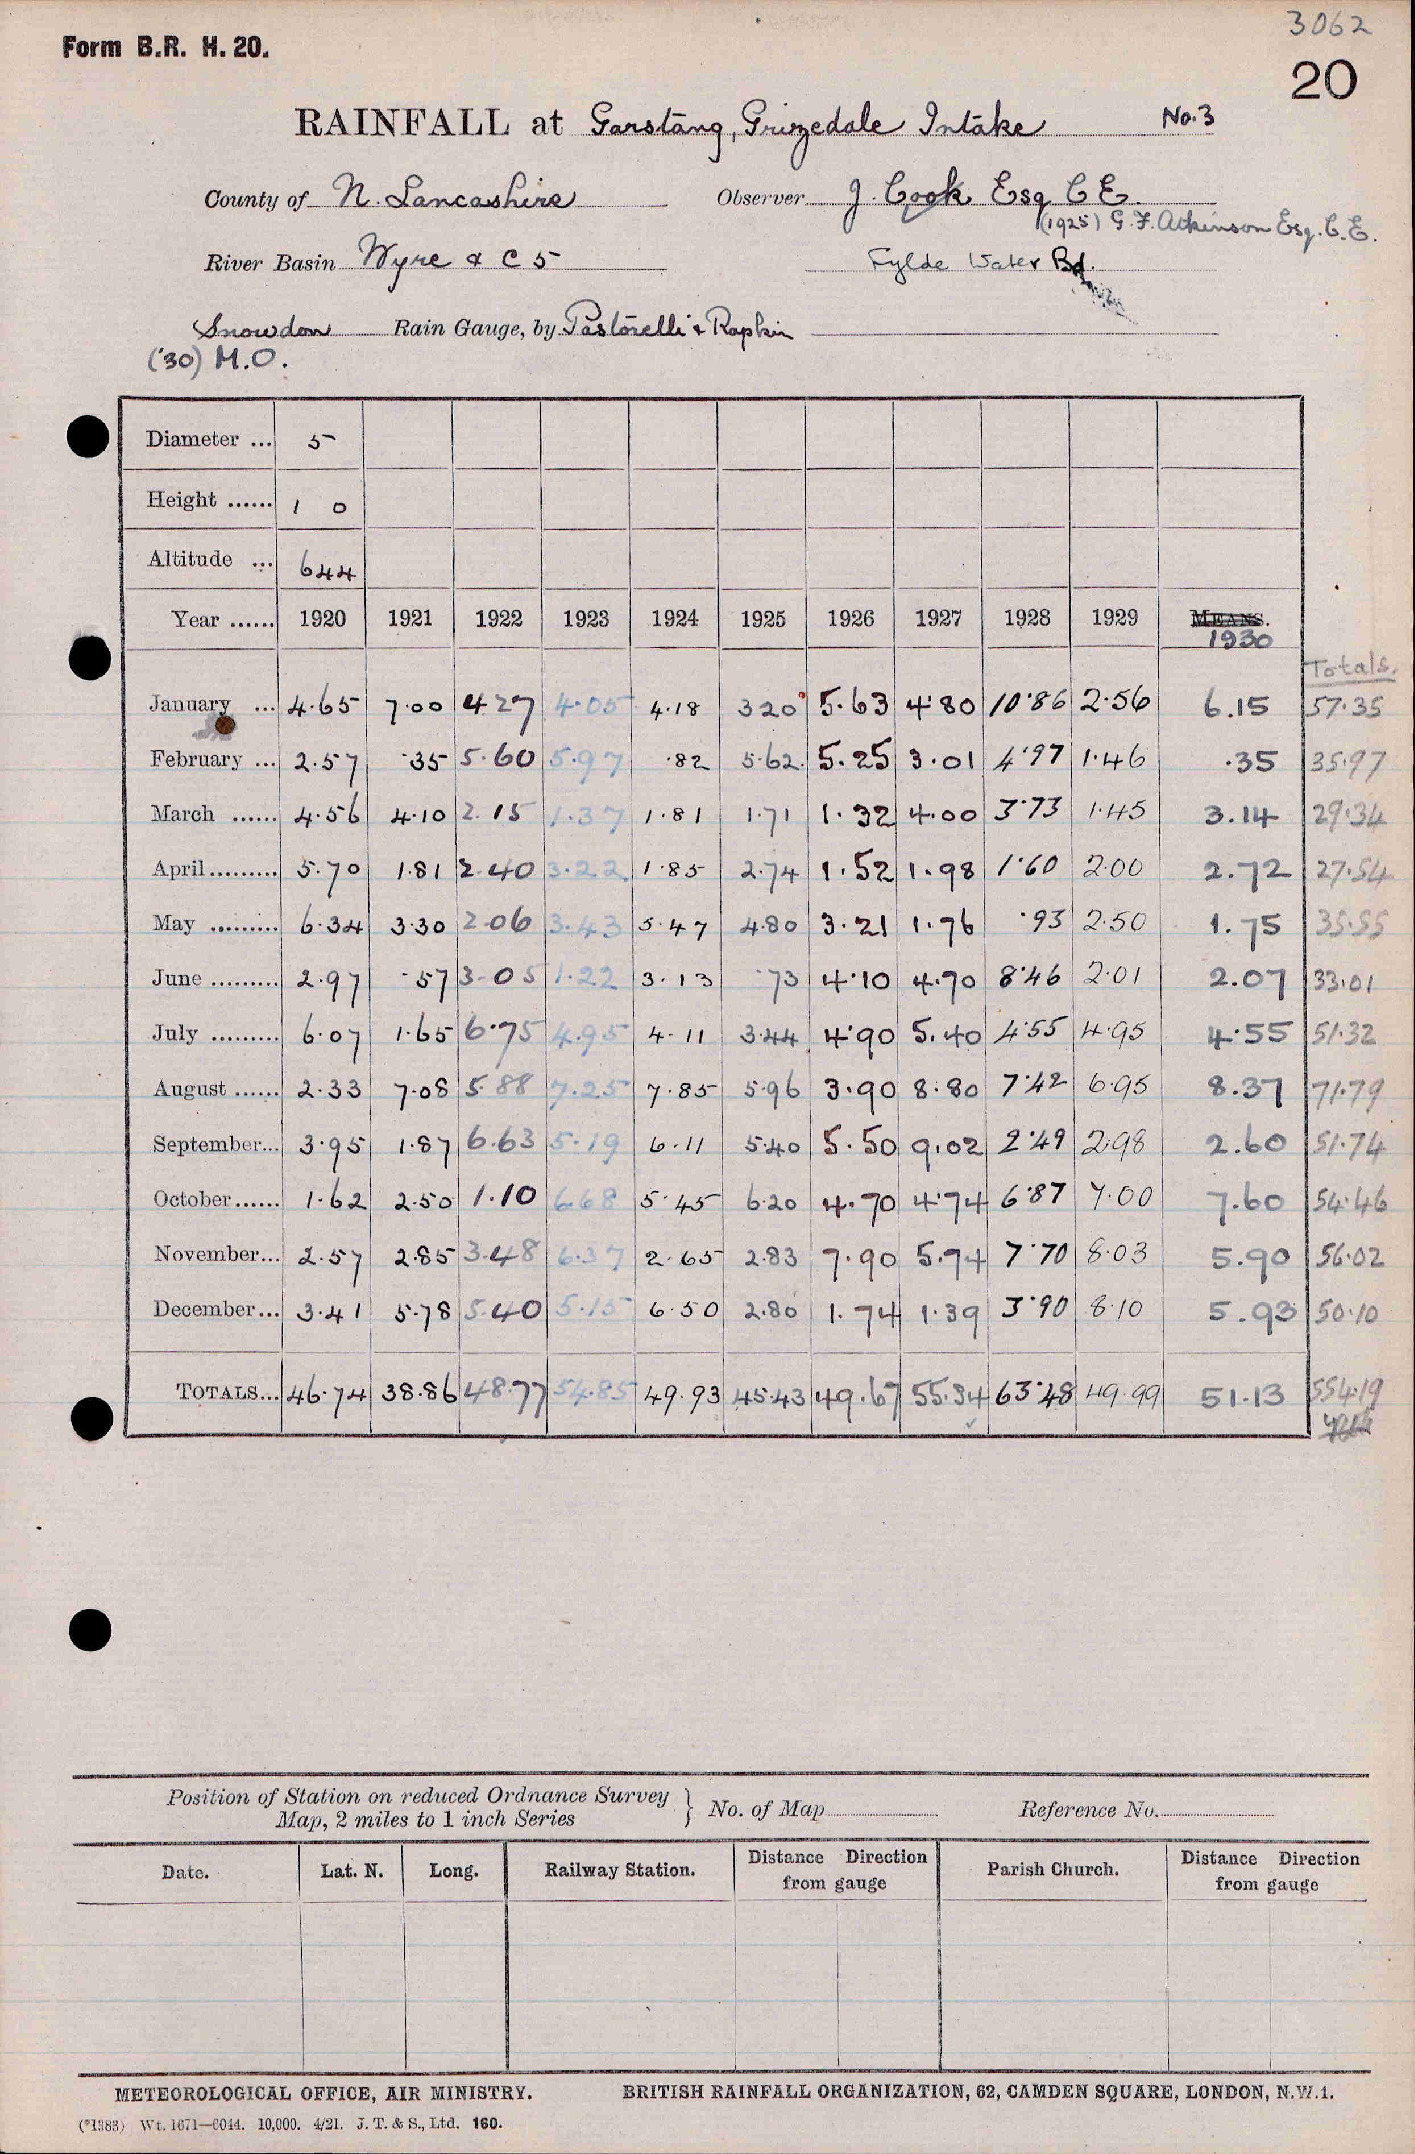 3062
Form B.R. H. 20.
20
RAINFALL at Garstang, Grizedale Intake No. 3
County of N. Lancashire Observer J. Cook Esq C E.
(1925) G. F. Atkinson Esq. C. E.
River Basin Wyre & C 5 Fylde Water Bd.
Snowdon Rain Gauge, by Pastorelli & Rapkin
('30) M.O.
Diameter ... 5
Height ...... 1 0
Altitude ... 644
Year ...... 1920 1921 1922 1923 1924 1925 1926 1927 1928 1929 MEANS.
1930
Totals.
January ... 4.65 7.00 4.27 4.05 4.18 3 20 5.63 4.80 10.86 2.56 6.15 57.35
February ... 2.57 .35 5.60 5.97 .82 5.62 5.25 3.01 4.97 1.46 .35 35.97
March ...... 4.56 4.10 2.15 1.37 1.81 1.71 1.32 4.00 3.73 1.45 3.14 29.34
April......... 5.70 1.81 2.40 3.22 1.85 2.74 1.52 1.98 1.60 2.00 2.72 27.54
May ......... 6.34 3.30 2.06 3.43 5.47 4.80 3.21 1.76 .93 2.50 1.75 35.55
June ......... 2.97 .57 3.05 1.22 3.13 .73 4.10 4.70 8.46 2.01 2.07 33.01
July ......... 6.07 1.65 6.75 4.95 4.11 3.44 4.90 5.40 4.55 4.95 4.55 51.32
August ...... 2.33 7.08 5.88 7.25 7.85 5.96 3.90 8.80 7.42 6.95 8.37 71.79
September... 3.95 1.87 6.63 5.19 6.11 5.40 5.50 9.02 2.49 2.98 2.60 51.74
October...... 1.62 2.50 1.10 6.68 5.45 6.20 4.70 4.74 6.87 7.00 7.60 54.46
November... 2.57 2.85 3.48 6.37 2.65 2.83 7.90 5.74 7.70 8.03 5.90 56.02
December... 3.41 5.78 5.40 5.15 6.50 2.80 1.74 1.39 3.90 8.10 5.93 50.10
TOTALS... 46.74 38.86 48.77 54.85 49.93 45.43 49.67 55.34 63.48 49.99 51.13 554.19
Position of Station on reduced Ordnance Survey
Map, 2 miles to 1 inch Series } No. of Map Reference No.
Date. Lat. N. Long. Railway Station. Distance Direction from gauge Parish Church. Distance Direction from gauge
METEOROLOGICAL OFFICE, AIR MINISTRY. BRITISH RAINFALL ORGANIZATION, 62, CAMDEN SQUARE, LONDON, N.W.1.
(*1383) Wt. 1671—6044. 10,000. 4/21. J. T. & S., Ltd. 160.